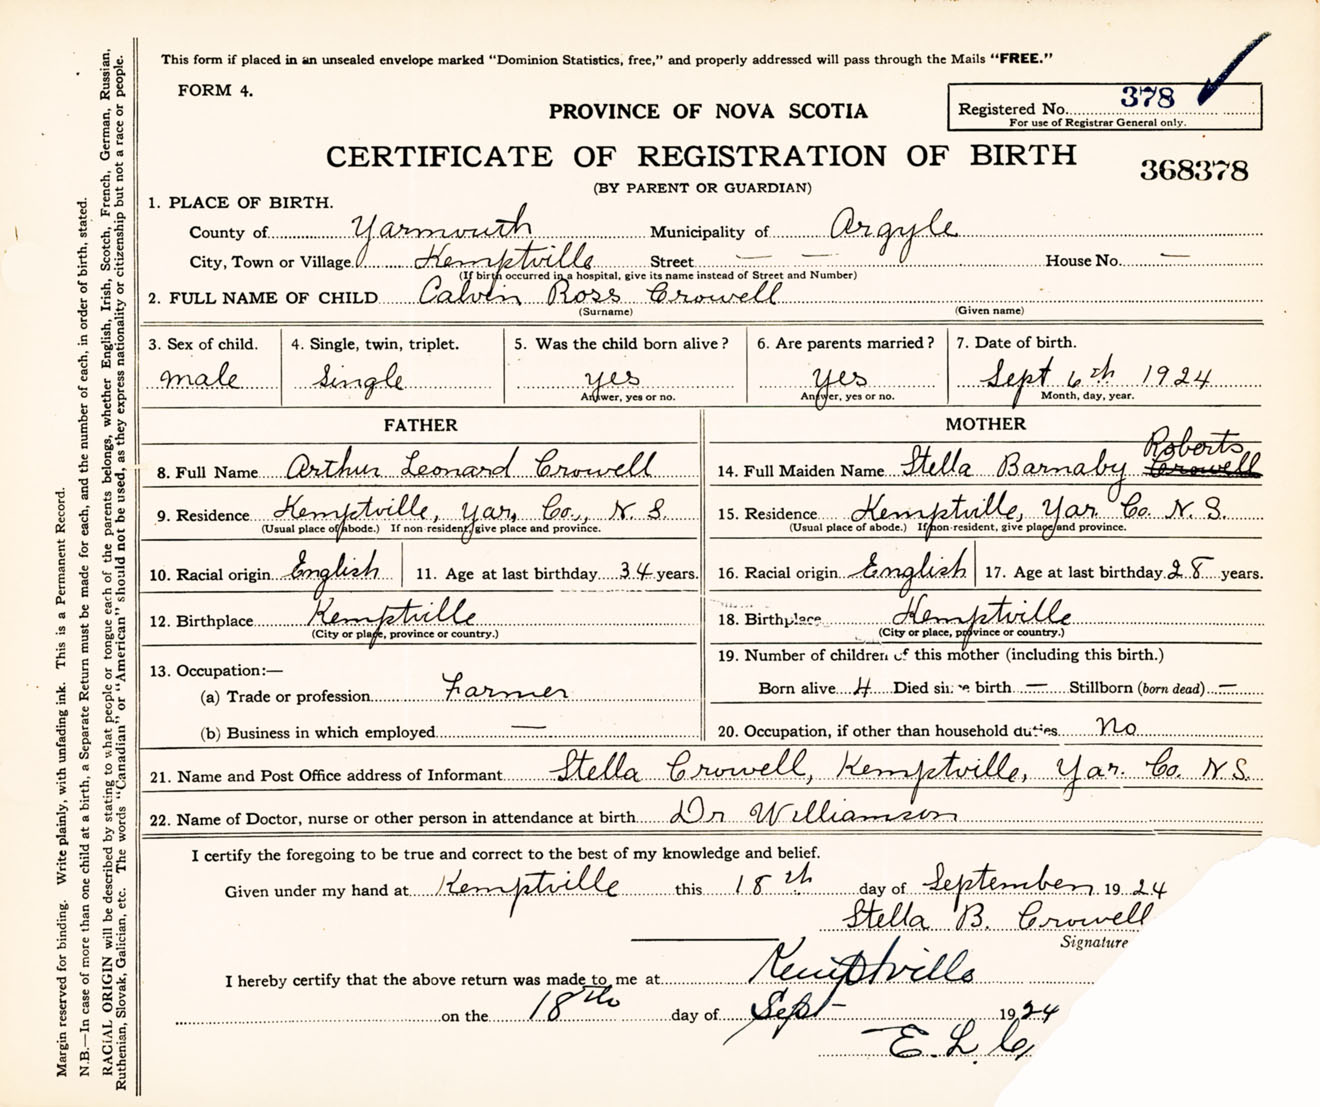 This form if placed in an unsealed envelope marked "Dominion Statistics, free," and properly addressed will pass through the Mails "FREE."
FORM 4.
PROVINCE OF NOVA SCOTIA
Registered No. 378
For use of Registrar General only.
CERTIFICATE OF REGISTRATION OF BIRTH
368378
(BY PARENT OR GUARDIAN)
1. PLACE OF BIRTH.
County of Yarmouth Municipality of Argyle
City, Town or Village Kemptville Street — — House No. —
(If birth occurred in a hospital, give its name instead of Street and Number)
2. FULL NAME OF CHILD Calvin Ross Crowell
(Surname) (Given name)
3. Sex of child. 4. Single, twin, triplet. 5. Was the child born alive? 6. Are parents married? 7. Date of birth.
male Single yes yes Sept 6th 1924
Answer, yes or no. Answer, yes or no. Month, day, year.
FATHER MOTHER
Roberts
8. Full Name Arthur Leonard Crowell 14. Full Maiden Name Stella Barnaby Crowell
9. Residence Kemptville, Yar, Co., N. S. 15. Residence Kemptville, Yar Co. N. S.
(Usual place of abode.) If non resident, give place and province. (Usual place of abode.) If non-resident, give place and province.
10. Racial origin English 11. Age at last birthday 34 years. 16. Racial origin English 17. Age at last birthday 28 years.
12. Birthplace Kemptville 18. Birthplace Kemptville
(City or place, province or country.) (City or place, province or country.)
19. Number of children of this mother (including this birth.)
13. Occupation:—
(a) Trade or profession Farmer Born alive 4 Died since birth — Stillborn (born dead) —
(b) Business in which employed — 20. Occupation, if other than household duties No
21. Name and Post Office address of Informant Stella Crowell, Kemptville, Yar. Co. N.S.
22. Name of Doctor, nurse or other person in attendance at birth Dr Williamson
I certify the foregoing to be true and correct to the best of my knowledge and belief.
Given under my hand at Kemptville this 18th day of September 1924
Stella B. Crowell
Signature
I hereby certify that the above return was made to me at Kemptville
on the 18th day of Sept 1924
E. L. C
Margin reserved for binding. Write plainly, with unfading ink. This is a Permanent Record.
N.B.—In case of more than one child at a birth, a Separate Return must be made for each, and the number of each, in order of birth, stated.
RACIAL ORIGIN will be described by stating to what people or tongue each of the parents belongs, whether English, Irish, Scotch, French, German, Russian,
Ruthenian, Slovak, Galician, etc. The words "Canadian" or "American" should not be used, as they express nationality or citizenship but not a race or people.